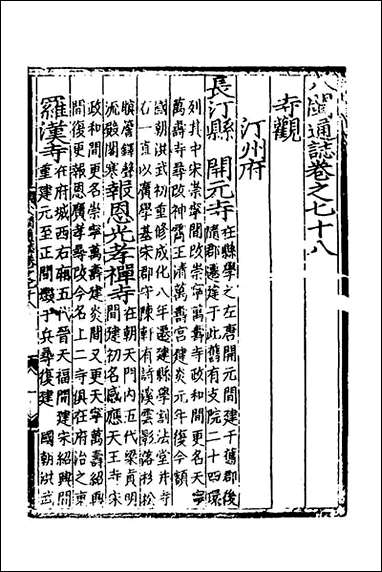 八閩通誌卷之七十八
寺觀
汀州府
長汀縣 開元寺在縣學之左唐開元間建于舊郡後
隋郡遷建于此舊有支院二十四環
列其中宋崇寧間改崇寧萬壽寺政和間更名天
萬壽寺尋改神霄玉清萬壽宮建炎元年復今額
國朝洪武初重修成化八年遷建縣學割法堂并寺
右一直以廣學基宋郡守陳軒有詩溪雲影落杉松
膽簷鐸聲流殿閣寒報恩光孝禪寺在朝天門內五代梁貞明
間建初名感應天王寺宋
政和間更名崇寧萬壽建炎間又更天寧萬壽紹興
間復更報恩廣孝尋改今名上二寺俱在府治之東
羅漢寺在府城西右廂五代晉天福間建宋紹興間
重建元至正間燬于兵尋復建 國朝洪武